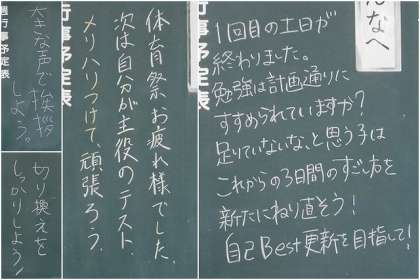 大きな声で挨拶
しよう。
切り換えを
しっかりしよう!
行事予定表
体育祭お疲れ様でした。
次は自分が主役のテスト。
メリハリつけて、頑張ろう。
なへ
1回目の土日が
終わりました。
勉強は計画通りに
すすめられていますか?
足りていないな、と思う子は
これからの3日間のすごし方を
新たにねり直そう!
自己Best更新を目指して!